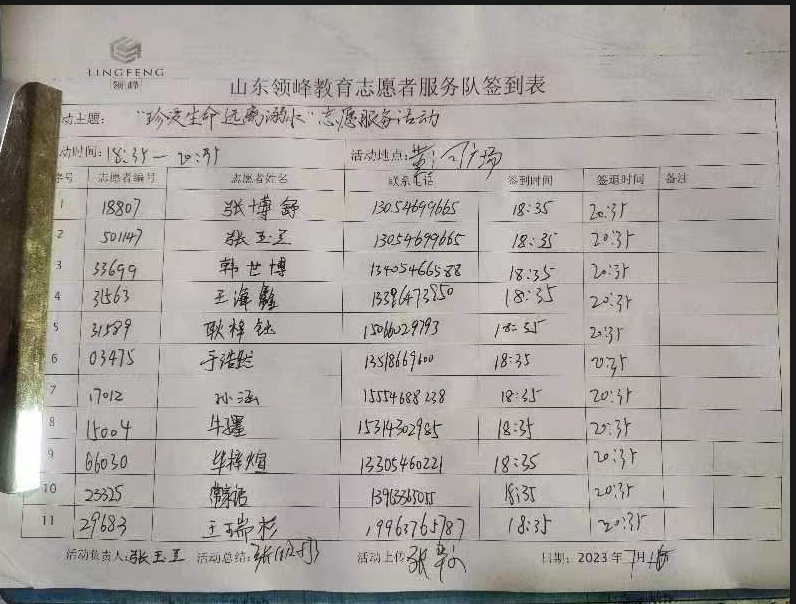 LINGFENG
领峰
山东领峰教育志愿者服务队签到表
动主题: "珍爱生命 远离溺水"志愿服务活动
动时间: 18:35 — 20:35 活动地点: 广场
序号 志愿者编号 志愿者姓名 联系电话 签到时间 签退时间 备注
1 18807 张博舒 13054699665 18:35 20:35
2 501147 张玉玉 13054699665 18:35 20:35
3 33699 韩世博 13405466588 18:35 20:35
4 31563 王海 18:35 20:35
5 31589 耿梓钰 15066029793 18:35 20:35
6 03475 于浩然 13518669600 18:35 20:35
7 17012 孙涵 15554688238 18:35 20:35
8 15004 牛 15314302985 18:35 20:35
9 66030 牟梓煊 13305460221 18:35 20:35
10 23325 18:35 20:35
11 29683 王瑞杉 19963765787 18:35 20:35
活动负责人: 张玉玉 活动总结: 张 活动上传 张 日期: 2023年7月